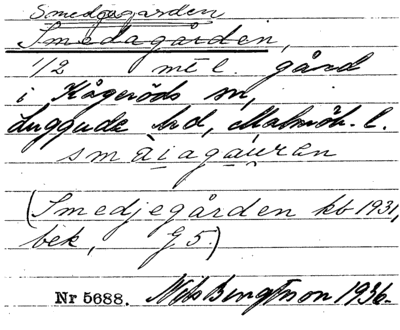 Smedjegården
Smedagården,
1/2 mtl. gård
i Kågeröds sn,
Luggude hd, Malmöh. l.
(Smedjegården kb 1931,
bek, G5.)
Nr 5688. Nils Bengtsson 1936.